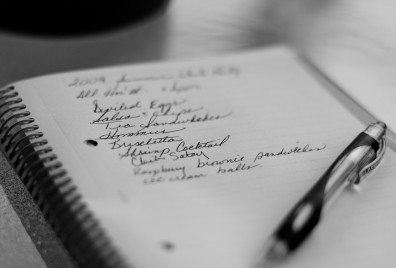 2009 Summer
All
Deviled Eggs
Salsa
Tea Sandwiches
Hommus
Bruschetta
Shrimp Cocktail
Satay
Raspberry Brownie Sandwiches
ice cream balls